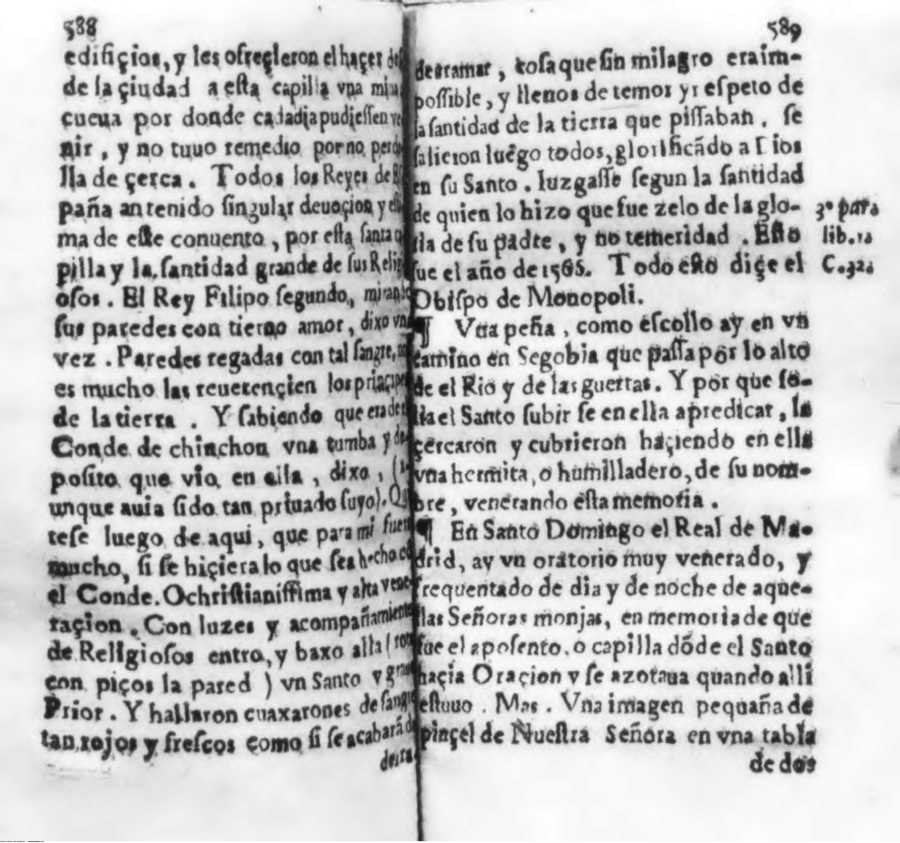 588
edifiçios, y les ofreçieron el haçer des
de la çiudad a esta capilla vna mi
cueua por donde cada dia pudiessen ve
nir, y no tuuo remedio por no perde
lla de çerca. Todos los Reyes de Es
paña an tenido singular deuoçion y esti
ma de este conuento, por esta santa ca
pilla y la santidad grande de sus Religi
osos. El Rey Filipo segundo, mirando
sus paredes con tierno amor, dixo vna
vez. Paredes regadas con tal sangre, no
es mucho las reuerençien los prinçipes
de la tierra. Y sabiendo que era de el
Conde de chinchon vna tumba y de
posito que vio en ella, dixo, (a
unque auia sido tan priuado suyo). Qui
tese luego de aqui, que para mi fuera
mucho, si se hiçiera lo que se a hecho co
el Conde. O christianissima y alta vene
raçion. Con luzes y acompañamiento
de Religiosos entro, y baxo alla (rom
con piços la pared) vn Santo y gran
Prior. Y hallaron cuaxarones de sangre
tan rojos y frescos como si se acabará de
derra
589
derramar, cosa que sin milagro era im-
possible, y llenos de temor y respeto de
la santidad de la tierra que pissaban. se
salieron luego todos, glorificādo a Dios
en su Santo. Iuzgasse segun la santidad
de quien lo hizo que fue zelo de la glo-
ria de su padre, y no temeridad. Esto
fue el año de 1565. Todo esto diçe el
Obispo de Monopoli.
3º para
lib. 1
C. 32.
¶ Vna peña, como escollo ay en vn
camino en Segobia que passa por lo alto
de el Rio y de las guertas. Y por que so-
lia el Santo subir se en ella a predicar, la
çercaron y cubrieron haçiendo en ella
vna hermita, o humilladero, de su nom-
bre, venerando esta memoria.
¶ En Santo Domingo el Real de Ma-
drid, ay vn oratorio muy venerado, y
frequentado de dia y de noche de aque-
llas Señoras monjas, en memoria de que
fue el aposento, o capilla dōde el Santo
haçia Oraçion y se azotaua quando alli
estuuo. Mas. Vna imagen pequaña de
pinçel de Nuestra Señora en vna tabla
de dos